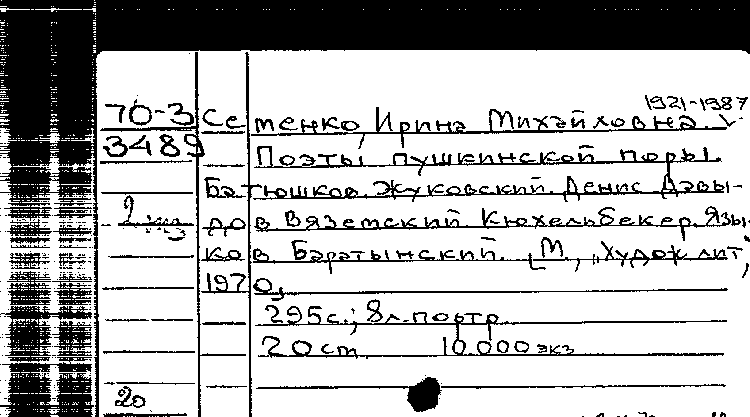 1921-1987
70-3 Семенко, Ирина Михайловна.
3489 Поэты пушкинской поры.
Батюшков. Жуковский. Денис Давы-
2 экз дов. Вяземский. Кюхельбекер. Язы-
ков. Баратынский. [М., „Худож лит",
1970,
295 с.; 8 л. портр
20 cm 10.000 экз
20